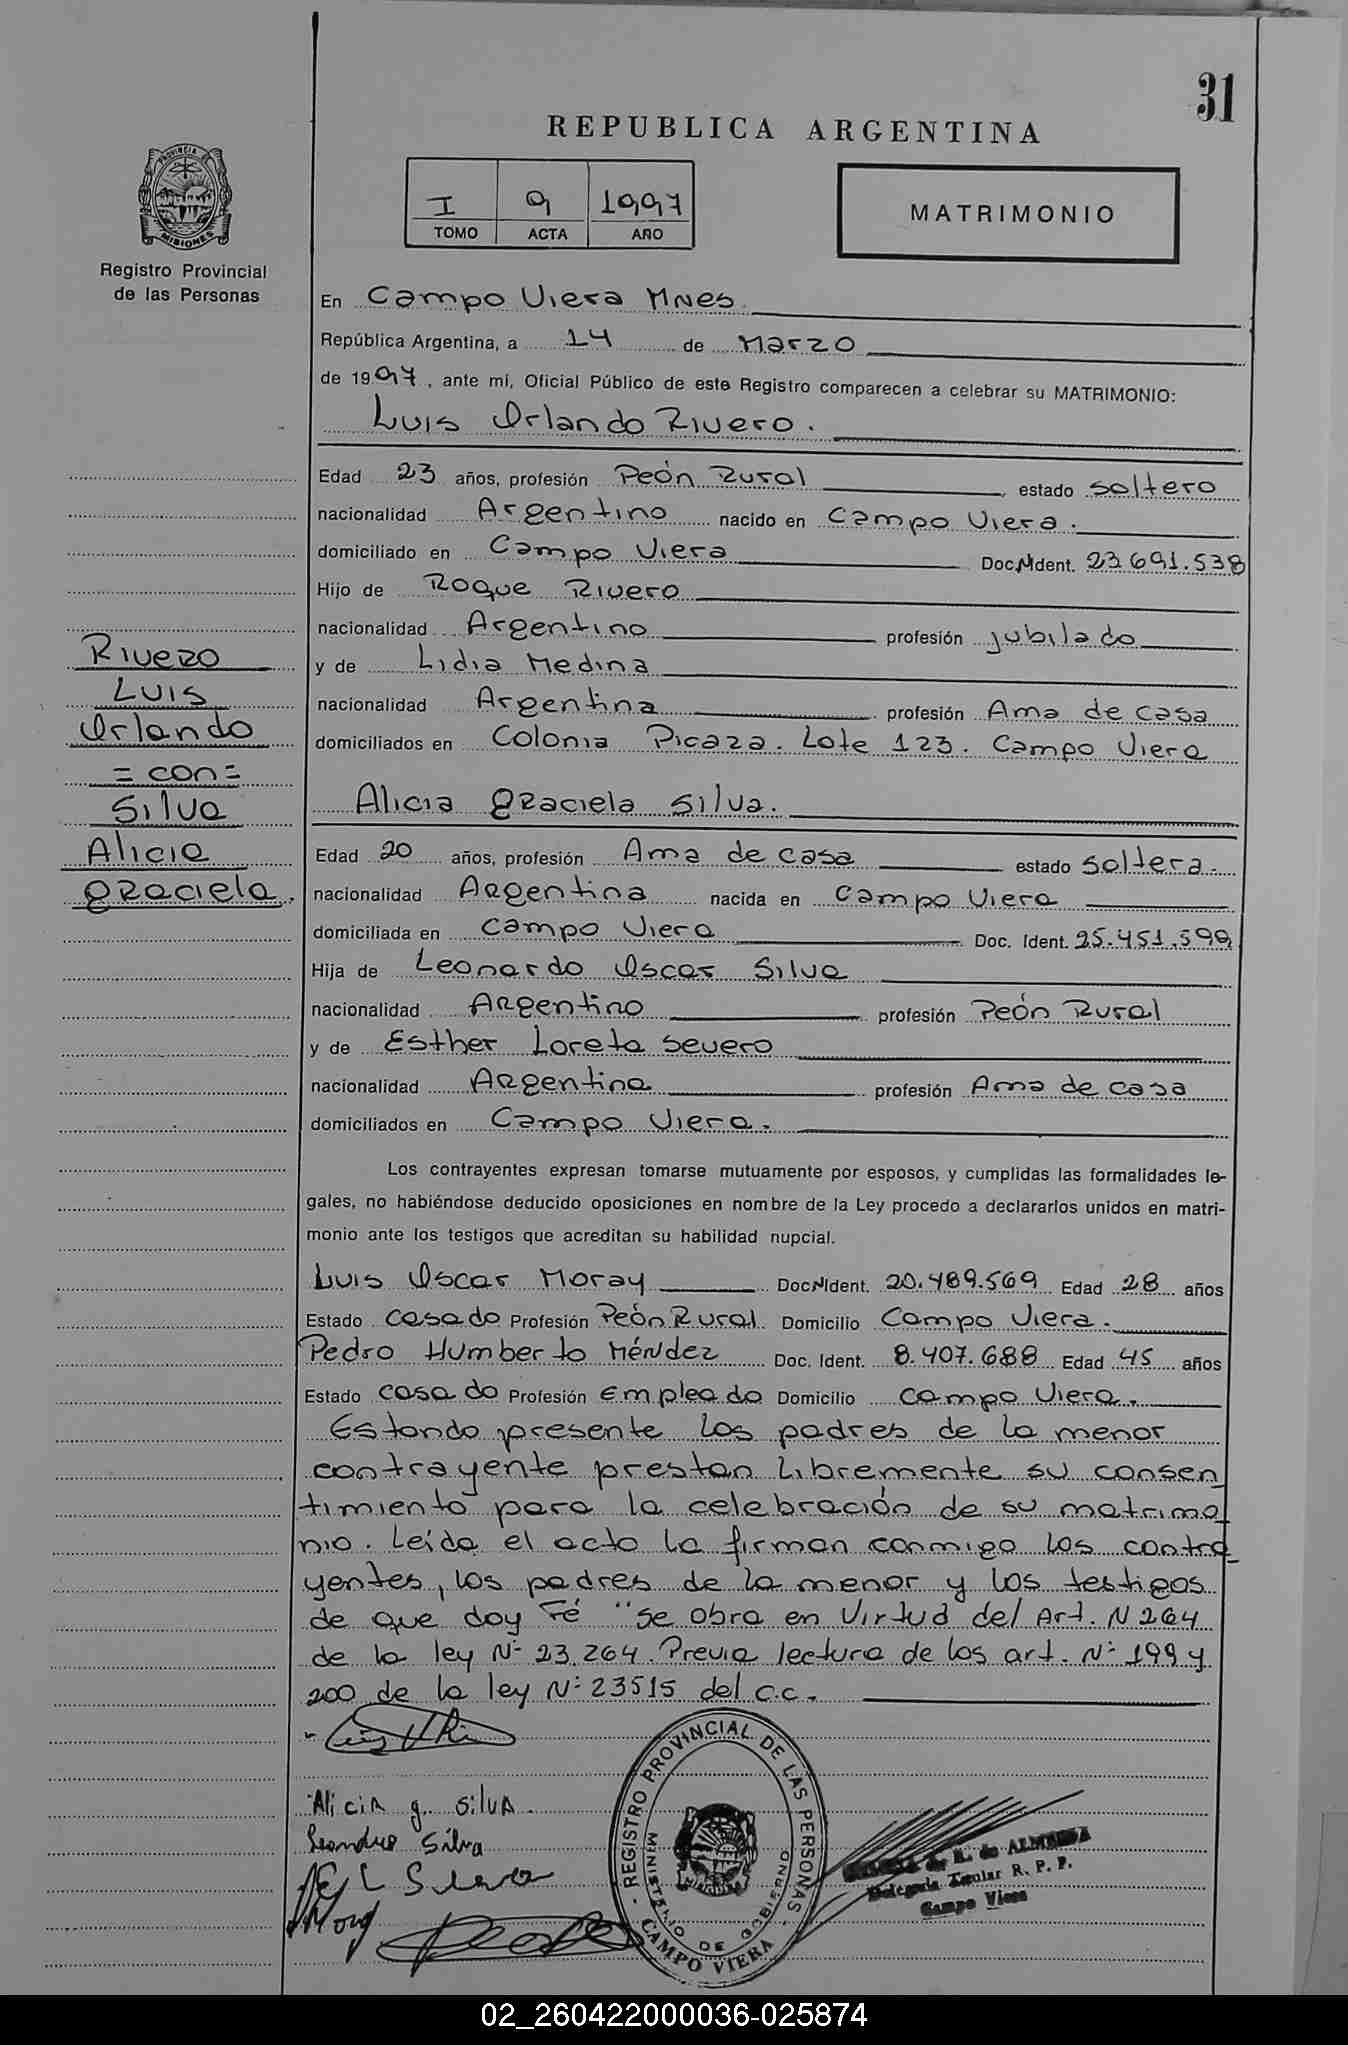 31
REPUBLICA ARGENTINA
I 9 1997
TOMO ACTA AÑO
MATRIMONIO
PROVINCIA DE
MISIONES
Registro Provincial
de las Personas
En Campo Viera Mnes.
República Argentina, a 14 de Marzo
de 1997, ante mí, Oficial Público de este Registro comparecen a celebrar su MATRIMONIO:
Luis Orlando Rivero.
Edad 23 años, profesión Peón Rural estado soltero
nacionalidad Argentino nacido en Campo Viera.
domiciliado en Campo Viera Doc.N Ident. 23.691.538
Hijo de Roque Rivero
nacionalidad Argentino profesión jubilado
y de Lidia Medina
nacionalidad Argentina profesión Ama de casa
domiciliados en Colonia Picaza. Lote 123. Campo Viera
Rivero
Luis
Orlando
= con =
Silva
Alicia
Graciela.
Alicia Graciela Silva.
Edad 20 años, profesión Ama de casa estado soltera.
nacionalidad Argentina nacida en Campo Viera
domiciliada en Campo Viera Doc. Ident. 25.451.599
Hija de Leonardo Oscar Silva
nacionalidad Argentino profesión Peón Rural
y de Esther Loreta Severo
nacionalidad Argentina profesión Ama de casa
domiciliados en Campo Viera.
Los contrayentes expresan tomarse mutuamente por esposos, y cumplidas las formalidades le-
gales, no habiéndose deducido oposiciones en nombre de la Ley procedo a declararlos unidos en matri-
monio ante los testigos que acreditan su habilidad nupcial.
Luis Oscar Moray Doc.N Ident. 20.489.569 Edad 28 años
Estado casado Profesión Peón Rural Domicilio Campo Viera.
Pedro Humberto Méndez Doc. Ident. 8.407.688 Edad 45 años
Estado casado Profesión Empleado Domicilio campo Viera.
Estando presente los padres de la menor
contrayente prestan libremente su consen
timiento para la celebración de su matrimo
nio. Leída el acto la firman conmigo los contra
yentes, los padres de la menor y los testigos
de que doy Fé "se obra en Virtud del Art. N 264
de la ley N° 23.264. Previa lectura de los art. N° 199 y
200 de la ley N° 23515 del c.c.
Alicia g. Silva.
Leandro Silva
E L Severo
Moray
REGISTRO PROVINCIAL DE LAS PERSONAS
MINISTERIO DE GOBIERNO
CAMPO VIERA
de ALMEIDA
Delegada Titular R. P. P.
Campo Viera
02_260422000036-025874